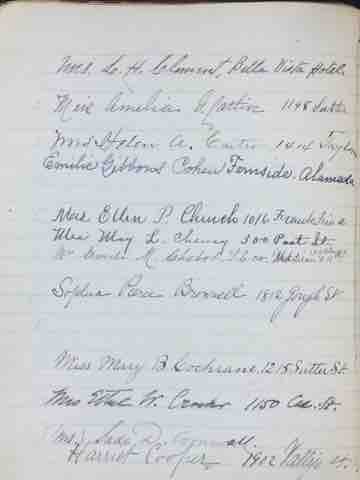 Mrs. L. H. Clement, Bella Vista Hotel.
Miss Amelia 1198 Sutter
Mrs Helen A. 1414 Taylor
Emilie Gibbons Cohen Fernside. Alameda
Mrs. Ellen P. Church 1016 Francisco
Mrs May L. Cheney 300 Post St
M. Chabot
Sophia Pierce Brownell 1812 Gough St
Miss Mary B Cochrane, 1215 Sutter St.
Mrs Ethel W. Crocker 1150 Cal. St.
Mrs. D. Cornwall.
Harriet Cooper 1902 Vallejo St.